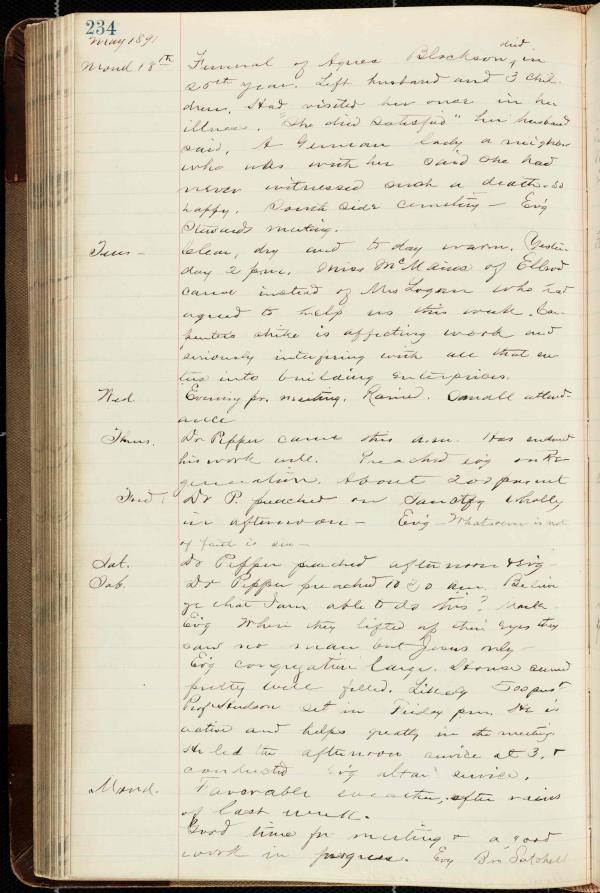 234
May 1891
Mond 18th Funeral of Agnes Blackson, died in
25th year. Left husband and 3 chil-
dren. Had visited her once in her
illness. "She died satisfied" her husband
said. A German lady a neighbor
who was with her said she had
never witnessed such a death - so
happy. South Side Cemetery - Ev'g
Stewards meeting.
Tues - Clear, dry and to day warm. Yester-
day 2 p.m. Miss McMains of Ellwd
came instead of Mrs Logan who had
agreed to help us this week. Car-
penters strike is affecting work and
seriously interfering with all that en-
ters into building enterprises.
Wed. Evening pr. meeting. Rained. Small attend-
ance
Thurs. Dr Pepper came this a.m. Has endured
his work well. Preached ev'g on Re-
generation. About 200 present
Frid. Dr P. preached on Sanctify wholly
in afternoon - Ev'g - Whatsoever is not
of faith is sin -
Sat. Dr Pepper preached afternoon & ev'g -
Sab. Dr Pepper preached 10 30 a.m. Believe
ye that I am able to do this?
Ev'g When they lifted up their eyes they
saw no man but Jesus only -
Ev'g congregation large. House seemed
pretty well filled. Likely 500 prest
Prof Hudson set in Friday p.m. He is
active and helps greatly in the meetings
He led the afternoon service at 3. &
conducted ev'g altar service.
Mond. Favorable weather, after rains
of last week.
Good time for meeting & a good
work in progress. Evg Bro Satchell